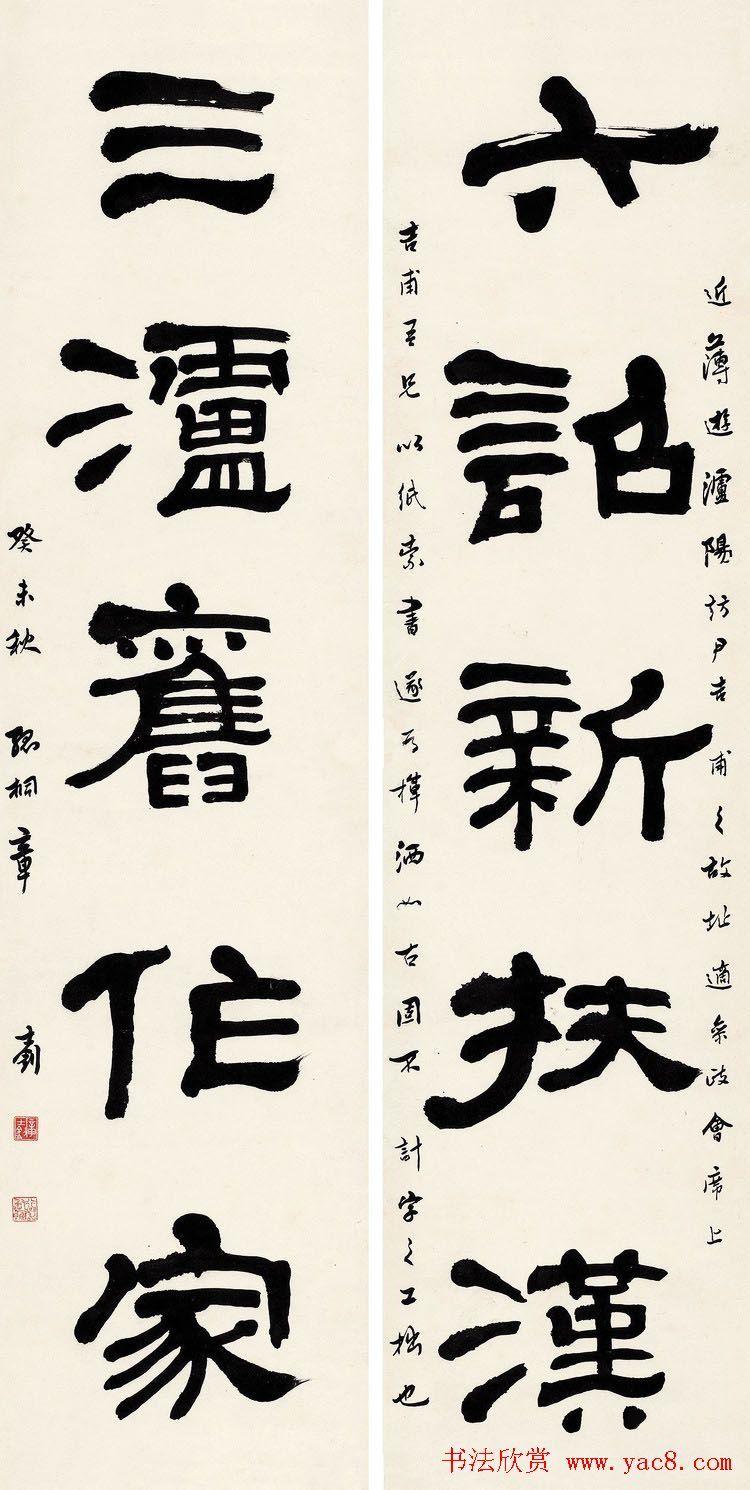 六詔新扶漢
近薄遊瀘陽訪尹吉甫之故址適參政會席上
吉甫吾兄以紙索書遂為揮洒如右固不計字之工拙也
三瀘舊作家
癸未秋 孤桐章士釗
书法欣赏 www.yac8.com